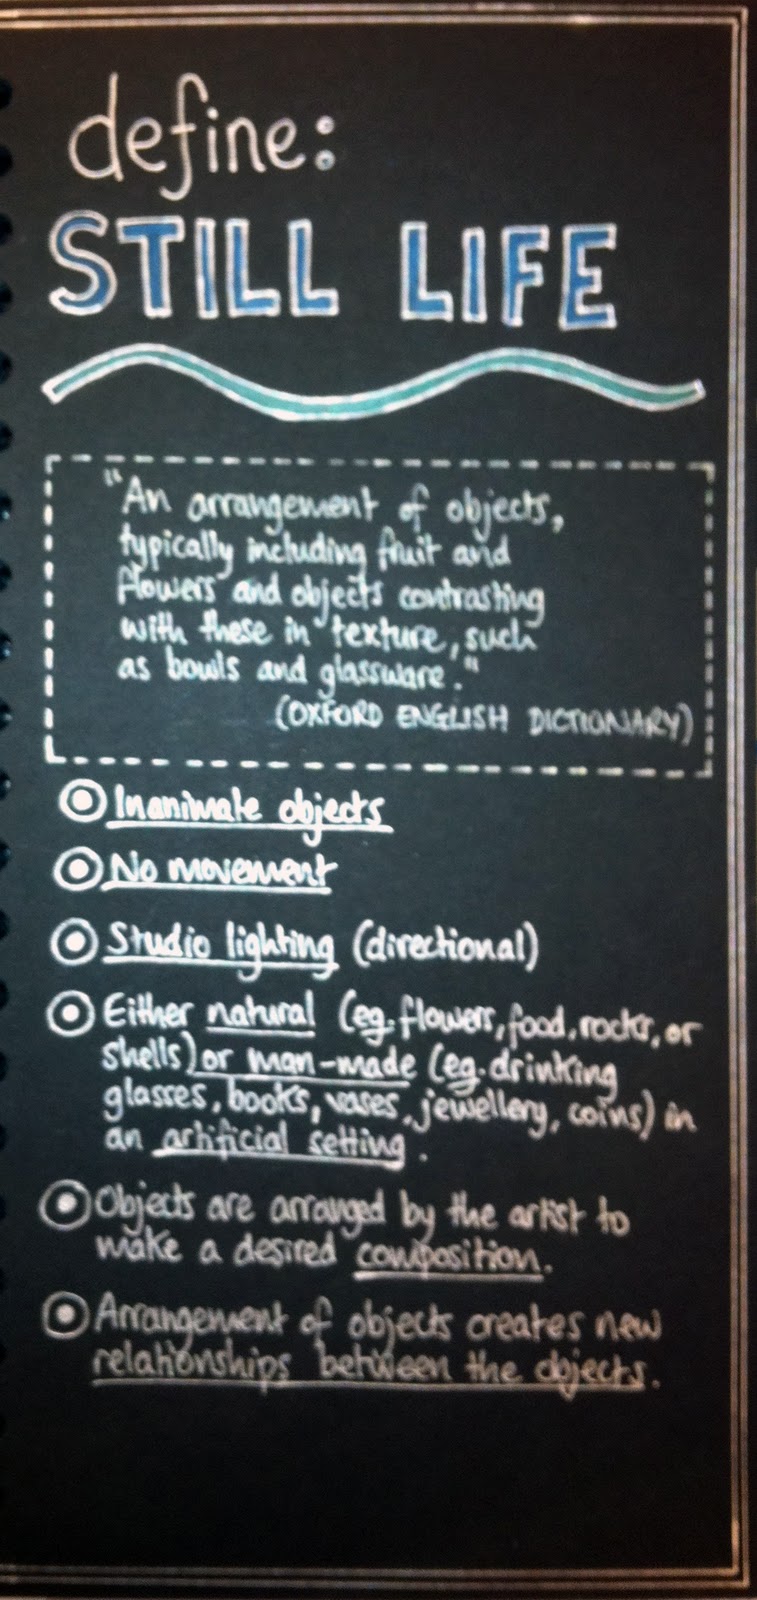 define:
STILL LIFE
"An arrangement of objects,
typically including fruit and
flowers and objects contrasting
with these in texture, such
as bowls and glassware."
(OXFORD ENGLISH DICTIONARY)
Inanimate objects
No movement
Studio lighting (directional)
Either natural (eg. flowers, food, rocks, or
shells) or man-made (eg. drinking
glasses, books, vases, jewellery, coins) in
an artificial setting.
Objects are arranged by the artist to
make a desired composition.
Arrangement of objects creates new
relationships between the objects.